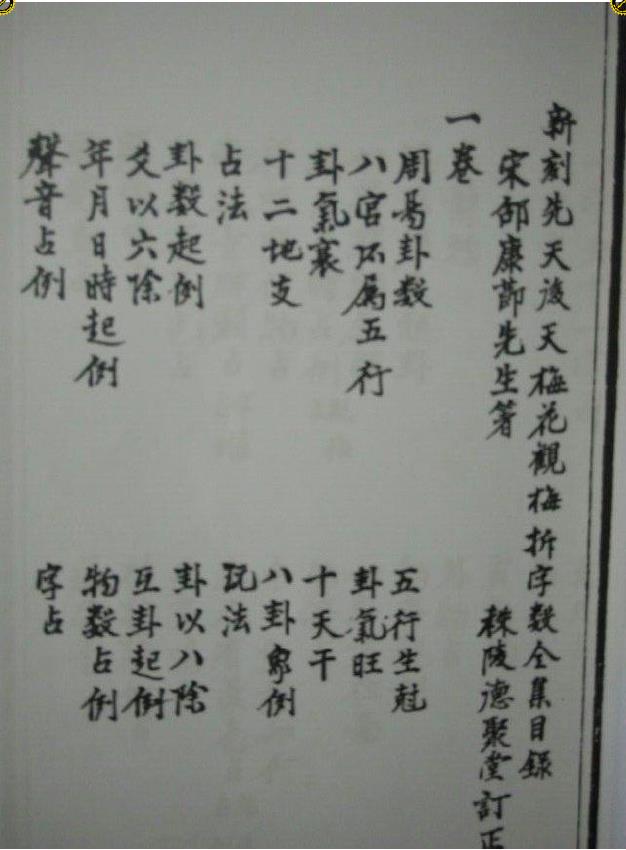 新刻先天後天梅花觀梅拆字數全集目錄
宋邵康節先生著
秣陵德聚堂訂正
一卷
周易卦數
五行生尅
八宮所屬五行
卦氣旺
卦氣衰
十天干
十二地支
八卦象例
占法
玩法
卦數起例
卦以八除
爻以六除
互卦起例
年月日時起例
物數占例
聲音占例
字占